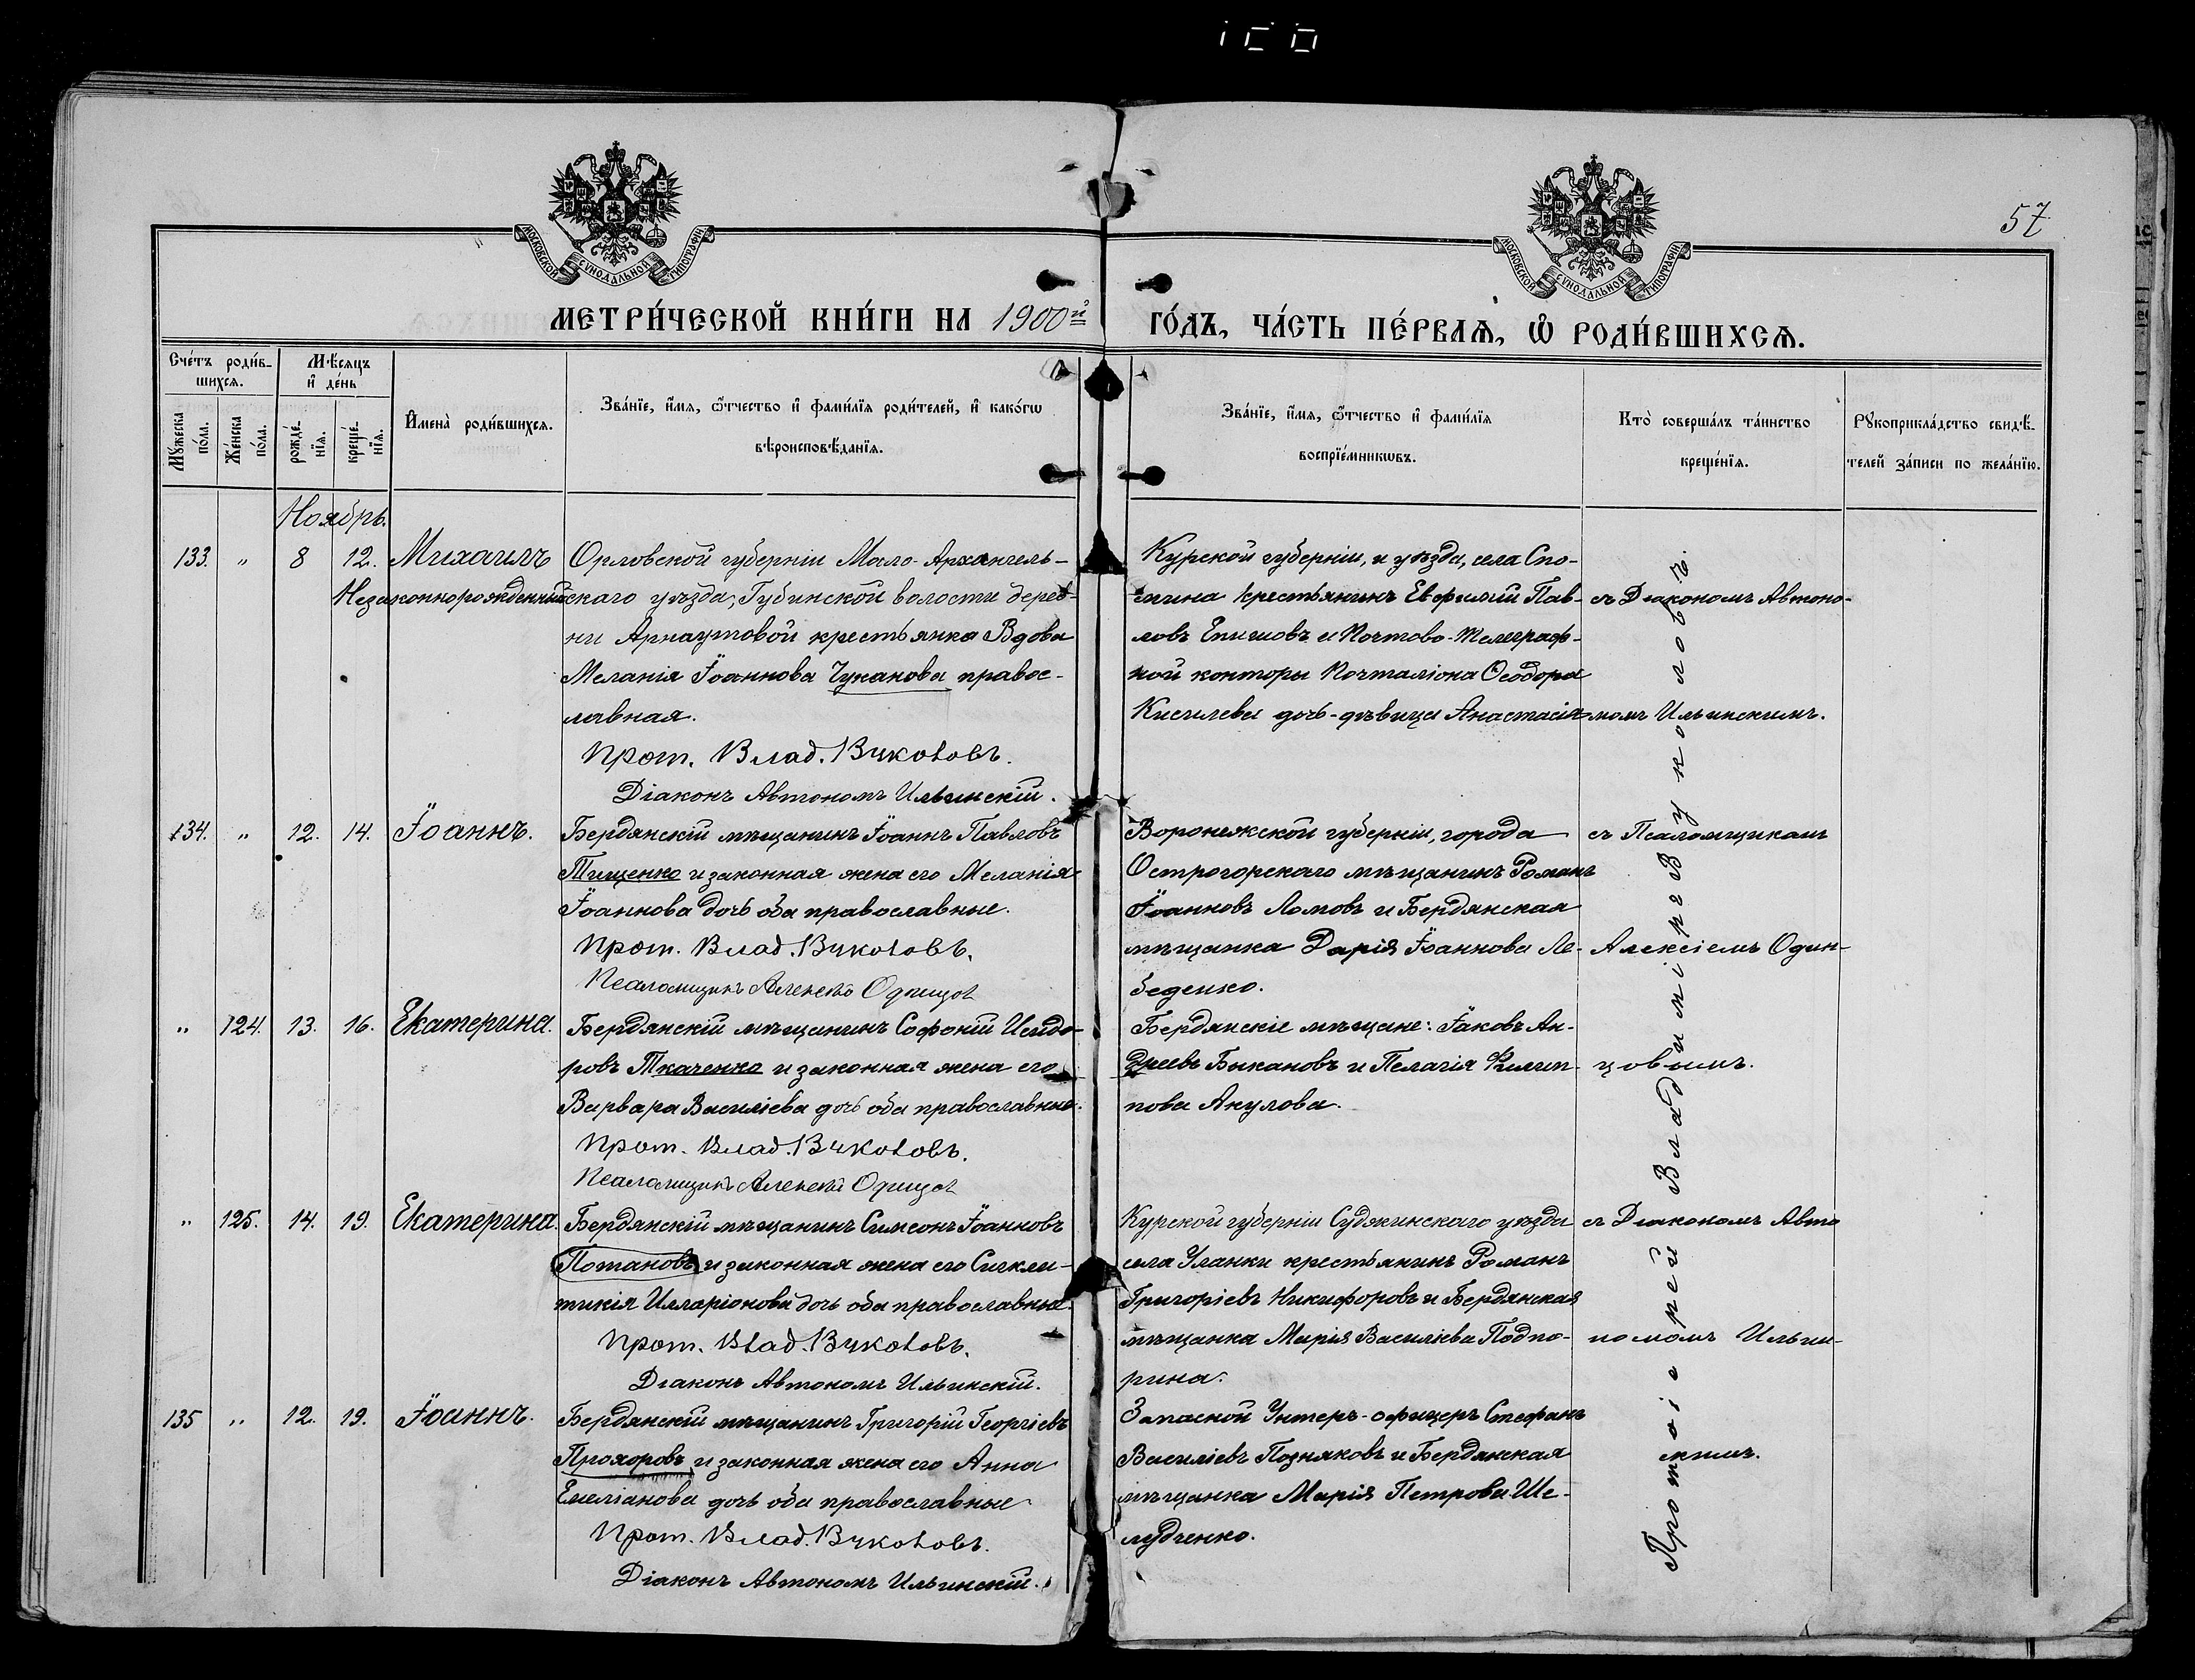 57
МОСКОВСКОЙ СѴНОДАЛЬНОЙ ТИПОГРАФІИ
МОСКОВСКОЙ СѴНОДАЛЬНОЙ ТИПОГРАФІИ
МЕТРИ́ЧЕСКОЙ КНИ́ГИ НА 1900й ГО́ДЪ, ЧА́СТЬ ПЕ́РВАѦ, Ѿ РОДИ́ВШИХСѦ.
Сче́тъ роди́в-
шихсѧ.
Мѣ́сѧцъ
и҆ де́нь
Мꙋ́жеска по́ла.
Же́нска по́ла.
рожде́-
нїѧ.
креще́-
нїѧ.
И҆мена̀ роди́вшихсѧ.
Зва́нїе, и҆́мѧ, ѻ҆́тчество и҆ фами́лїѧ роди́телей, и҆ како́гѡ
вѣроисповѣ́данїѧ.
Зва́нїе, и҆́мѧ, ѻ҆́тчество и҆ фами́лїѧ
воспрїе́мникѡвъ.
Кто̀ соверша́лъ та́инство
креще́нїѧ.
Рꙋкоприкла́дство свидѣ́-
телей за́писи по жела́нїю.
Ноябрь.
133. " 8 12. Михаилъ
Незаконнорожденный
Орловской губерніи Мало-Архангель-
скаго уѣзда, Губинской волости дерев-
ни Арнаутовой крестьянка Вдова
Меланія Іоаннова Чуканова правос-
лавная.
Прот. Влад. Вуколовъ.
Діаконъ Автономъ Ильинскій.
Курской губерніи, и уѣзда, села Спо-
крестьянинъ Евфимій Пав-
ловъ Епишовъ и Почтово-Телеграф-
ной конторы Почталіона Ѳеодора
Киселева дочь-дѣвица Анастасія
съ Діакономъ Автоно-
момъ Ильинскимъ.
134. " 12. 14. Іоаннъ.
Бердянскій мѣщанинъ Іоаннъ Павловъ
Тищенко и законная жена его Меланія
Іоаннова дочь оба православные.
Прот. Влад. Вуколовъ.
Псаломщикъ Алексѣй Одинцов
Воронежской губерніи, города
Острогорскаго мѣщанинъ Романъ
Іоанновъ Ломовъ и Бердянская
мѣщанка Дарія Іоаннова Ле-
беденко.
съ Псаломщикомъ
Алексіемъ Один-
цовымъ.
" 124. 13. 16. Екатерина.
Бердянскій мѣщанинъ Софоній Исидо-
ровъ Ткаченко и законная жена его
Варвара Василіева дочь оба православные.
Прот. Влад. Вуколовъ.
Псаломщикъ Алексѣй Одинцов
Бердянскіе мѣщане: Іаковъ Ан-
дреевъ Быкановъ и Пелагія Филип-
пова Акулова.
" 125. 14. 19. Екатерина.
Бердянскій мѣщанинъ Симеонъ Іоанновъ
Потановъ и законная жена его Сигкли-
тикія Илларіонова дочь оба православные.
Прот. Влад. Вуколовъ.
Діаконъ Автономъ Ильинскій.
Курской губерніи Суджинскаго уѣзда
села Уланки крестьянинъ Романъ
Григоріевъ Никифоровъ и Бердянская
мѣщанка Марія Василіева Подпо-
рина.
съ Діакономъ Авто
номомъ Ильин-
скимъ.
135 " 12. 19. Іоаннъ.
Бердянскій мѣщанинъ Григорій Георгіевъ
Прохоровъ и законная жена его Анна
Емеліанова дочь оба православные
Прот. Влад. Вуколовъ.
Діаконъ Автономъ Ильинскій.
Запасной Унтеръ-офицеръ Стефанъ
Василіевъ Позняковъ и Бердянская
мѣщанка Марія Петрова Ше-
лудченко.
Протоіерей Владиміръ Вуколовъ.